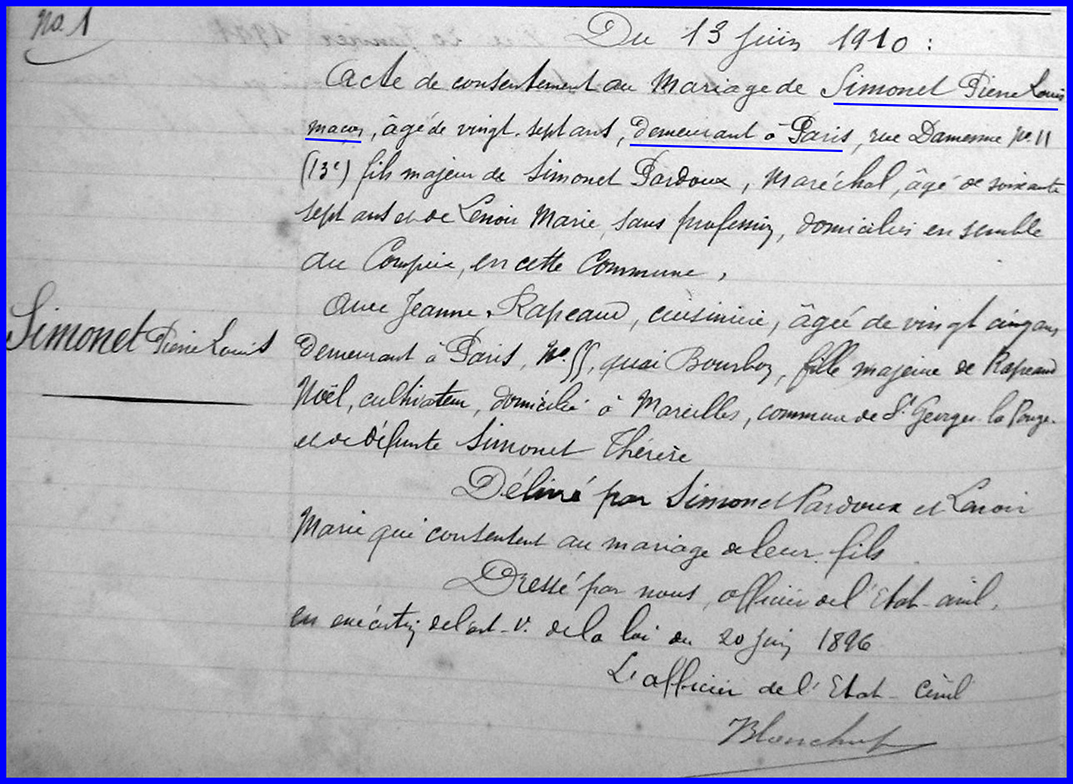 No. 1
Du 13 juin 1910 :
Acte de consentement au Mariage de Simonet Pierre Louis
maçon, âgé de vingt-sept ans, demeurant à Paris, rue Damesme No. 11
(13e) fils majeur de Simonet Pardoux, Maréchal, âgé de soixante
sept ans et de Lenoir Marie, sans profession, domiciliés ensemble
au Compeix, en cette Commune,
Avec Jeanne Rapeaud, cuisinière, âgée de vingt cinq ans
Simonet Pierre Louis
demeurant à Paris, No. 55, quai Bourbon, fille majeure de Rapeaud
Noël, cultivateur, domicilié à Mareilles, commune de St Georges la Pouge
et de défunte Simonet Thérèse
Délivré par Simonet Pardoux et Lenoir
Marie qui consentent au mariage de leur fils
Dressé par nous, officier de l'Etat-civil,
en exécution de l'art. V. de la loi du 20 juin 1896
L'officier de l'Etat-Civil